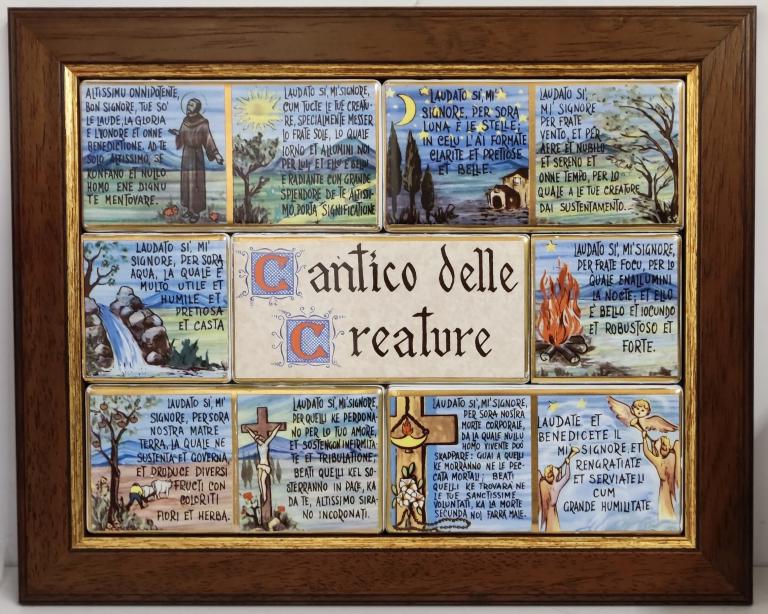 ALTISSIMU ONNIPOTENTE,
BON SIGNORE, TUE SO'
LE LAUDE, LA GLORIA
E L'HONORE ET ONNE
BENEDICTIONE. AD TE
SOLO ALTISSIMO, SE
KONFANO ET NULLO
HOMO ENE DIGNU
TE MENTOVARE.
LAUDATO SI', MI' SIGNORE,
CUM TUCTE LE TUE CREATU-
RE, SPECIALMENTE MESSER
LO FRATE SOLE, LO QUALE
IORNO ET ALLUMINI NOI
PER LUI, ET ELLO È BELLU
E RADIANTE CUM GRANDE
SPLENDORE DE TE ALTISSI-
MO, PORTA SIGNIFICATIONE
LAUDATO SI', MI'
SIGNORE, PER SORA
LUNA E LE STELLE,
IN CELU L'AI FORMATE
CLARITE ET PRETIOSE
ET BELLE.
LAUDATO SI',
MI' SIGNORE
PER FRATE
VENTO, ET PER
AERE ET NUBILO
ET SERENO ET
ONNE TEMPO, PER LO
QUALE A LE TUE CREATURE
DAI SUSTENTAMENTO...
LAUDATO SI', MI'
SIGNORE, PER SORA
AQUA, LA QUALE È
MULTO UTILE ET
HUMILE ET
PRETIOSA
ET CASTA
Cantico delle
Creature
LAUDATO SI', MI' SIGNORE,
PER FRATE FOCU, PER LO
QUALE ENALLUMINI
LA NOCTE, ET ELLO
È BELLO ET IOCUNDO
ET ROBUSTOSO ET
FORTE.
LAUDATO SI', MI'
SIGNORE, PER SORA
NOSTRA MATRE
TERRA, LA QUALE NE
SUSTENTA ET GOVERNA,
ET PRODUCE DIVERSI
FRUCTI CON
COLORITI
FIORI ET HERBA.
LAUDATO SI', MI' SIGNORE,
PER QUELLI KE PERDONA-
NO PER LO TUO AMORE,
ET SOSTENGON INFIRMITA-
TE ET TRIBULATIONE,
BEATI QUELLI KEL SO-
STERRANNO IN PACE, KA
DA TE, ALTISSIMO SIRA-
NO INCORONATI.
LAUDATO SI', MI' SIGNORE,
PER SORA NOSTRA
MORTE CORPORALE,
DA LA QUALE NULLU
HOMO VIVENTE PO'
SKAPPARE: GUAI A QUELLI
KE MORRANNO NE LE PEC-
CATA MORTALI; BEATI
QUELLI KE TROVARÀ NE
LE TUE SANCTISSIME
VOLUNTATI, KA LA MORTE
SECUNDA NOI FARRÀ MALE.
LAUDATE ET
BENEDICETE IL
MI' SIGNORE, ET
RENGRATIATE
ET SERVIATELI
CUM
GRANDE HUMILITATE